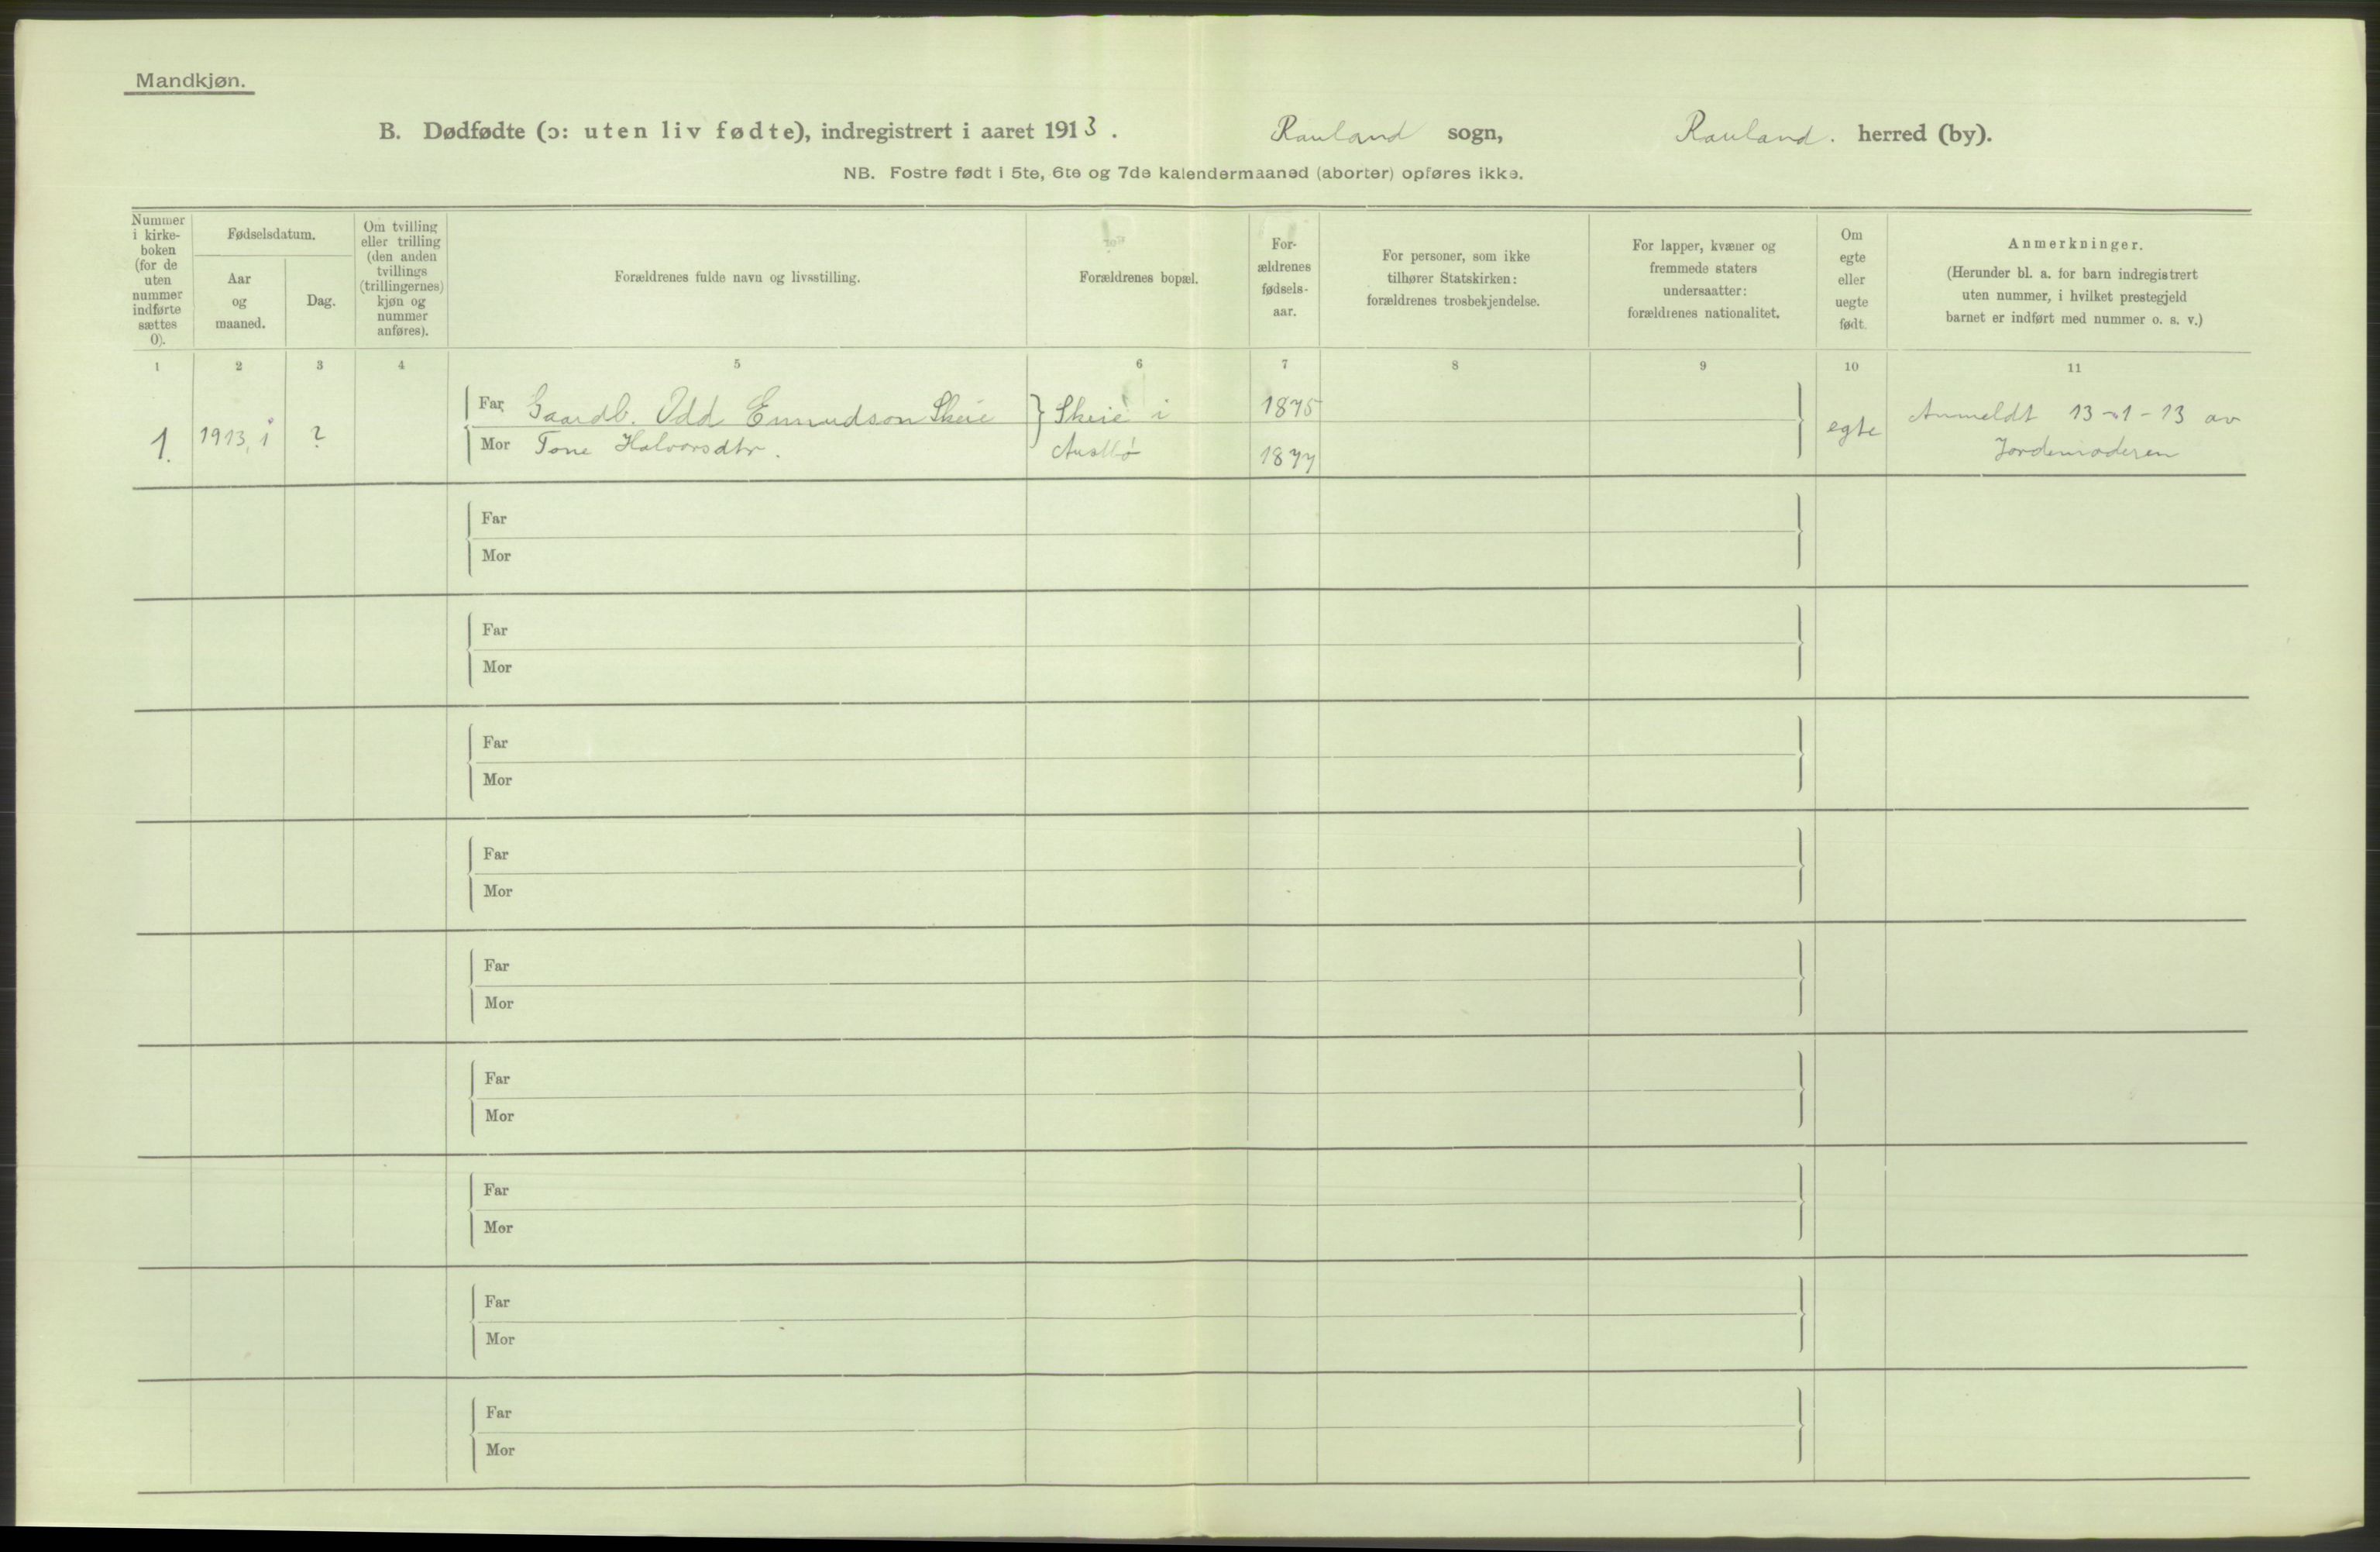 Mandkjøn.
B. Dødfødte (ɔ: uten liv fødte), indregistrert i aaret 1913. Rauland sogn, Rauland. herred (by).
NB. Fostre født i 5te, 6te og 7de kalendermaaned (aborter) opføres ikke.
Nummer
i kirke-
boken
(for de
uten
nummer
indførte
sættes
0).
Fødselsdatum.
Aar
og
maaned.
Dag.
Om tvilling
eller trilling
(den anden
tvillings
(trillingernes)
kjøn og
nummer
anføres).
Forældrenes fulde navn og livsstilling.
Forældrenes bopæl.
For-
ældrenes
fødsels-
aar.
For personer, som ikke
tilhører Statskirken:
forældrenes trosbekjendelse.
For lapper, kvæner og
fremmede staters
undersaatter:
forældrenes nationalitet.
Om
egte
eller
uegte
født.
Anmerkninger.
(Herunder bl. a. for barn indregistrert
uten nummer, i hvilket prestegjeld
barnet er indført med nummer o. s. v.)
1 2 3 4 5 6 7 8 9 10 11
1. 1913, i ?
Far Gaardb. Odd Emmudson Skeie
Mor Tone Halvorsdtr.
Skeie i
Austbø
1875
1877
egte
Anmeldt 13-1-13 av
Jordemoderen
Far
Mor
Far
Mor
Far
Mor
Far
Mor
Far
Mor
Far
Mor
Far
Mor
Far
Mor
Far
Mor